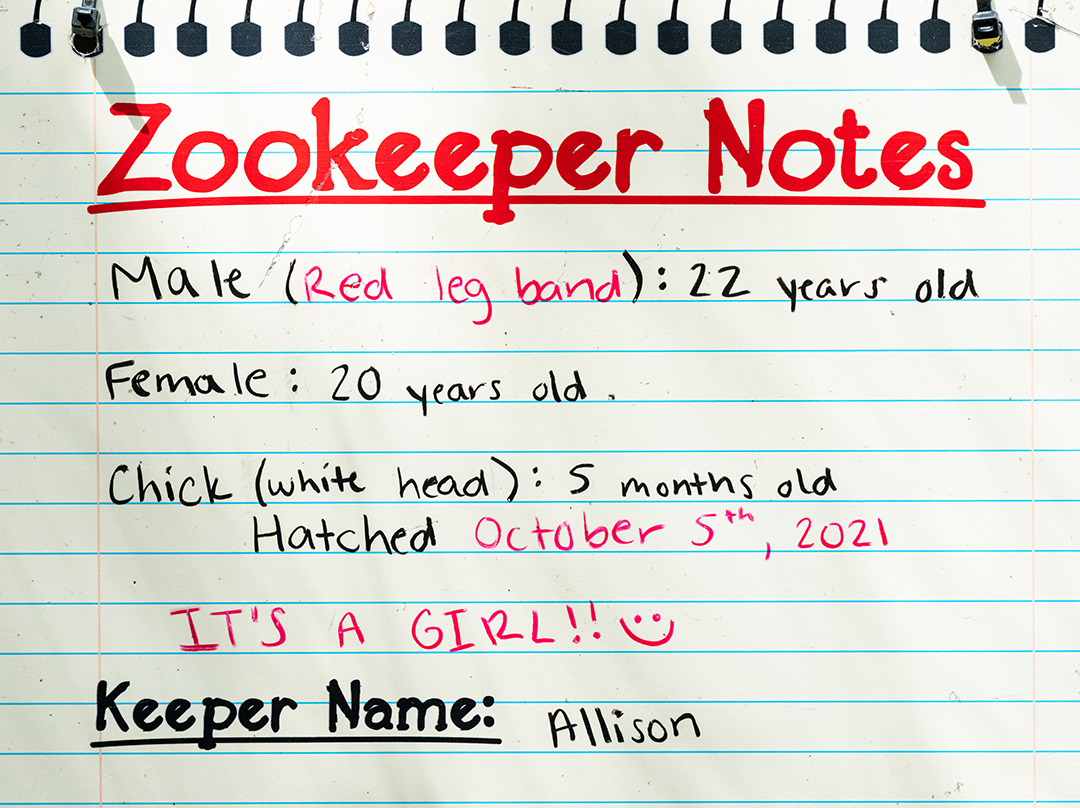 Zookeeper Notes
Male (Red leg band): 22 years old
Female: 20 years old.
Chick (white head): 5 months old
Hatched October 5th, 2021
IT'S A GIRL!!
Keeper Name: Allison